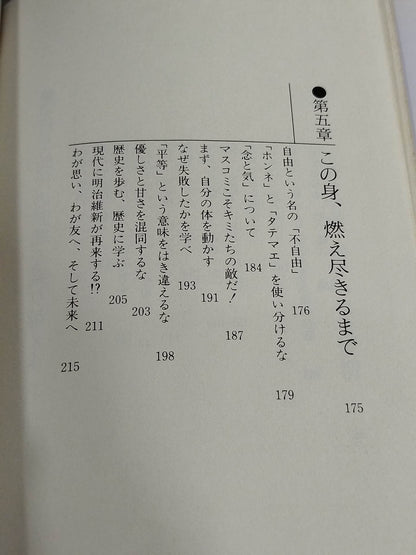 ●第五章 この身、燃え尽きるまで 175
自由という名の「不自由」 176
「ホンネ」と「タテマエ」を使い分けるな 179
「念と気」について 184
マスコミこそキミたちの敵だ！ 187
まず、自分の体を動かす 191
なぜ失敗したかを学べ 193
「平等」という意味をはき違えるな 198
優しさと甘さを混同するな 203
歴史を歩む、歴史に学ぶ 205
現代に明治維新が再来する!? 211
わが思い、わが友へ、そして未来へ 215